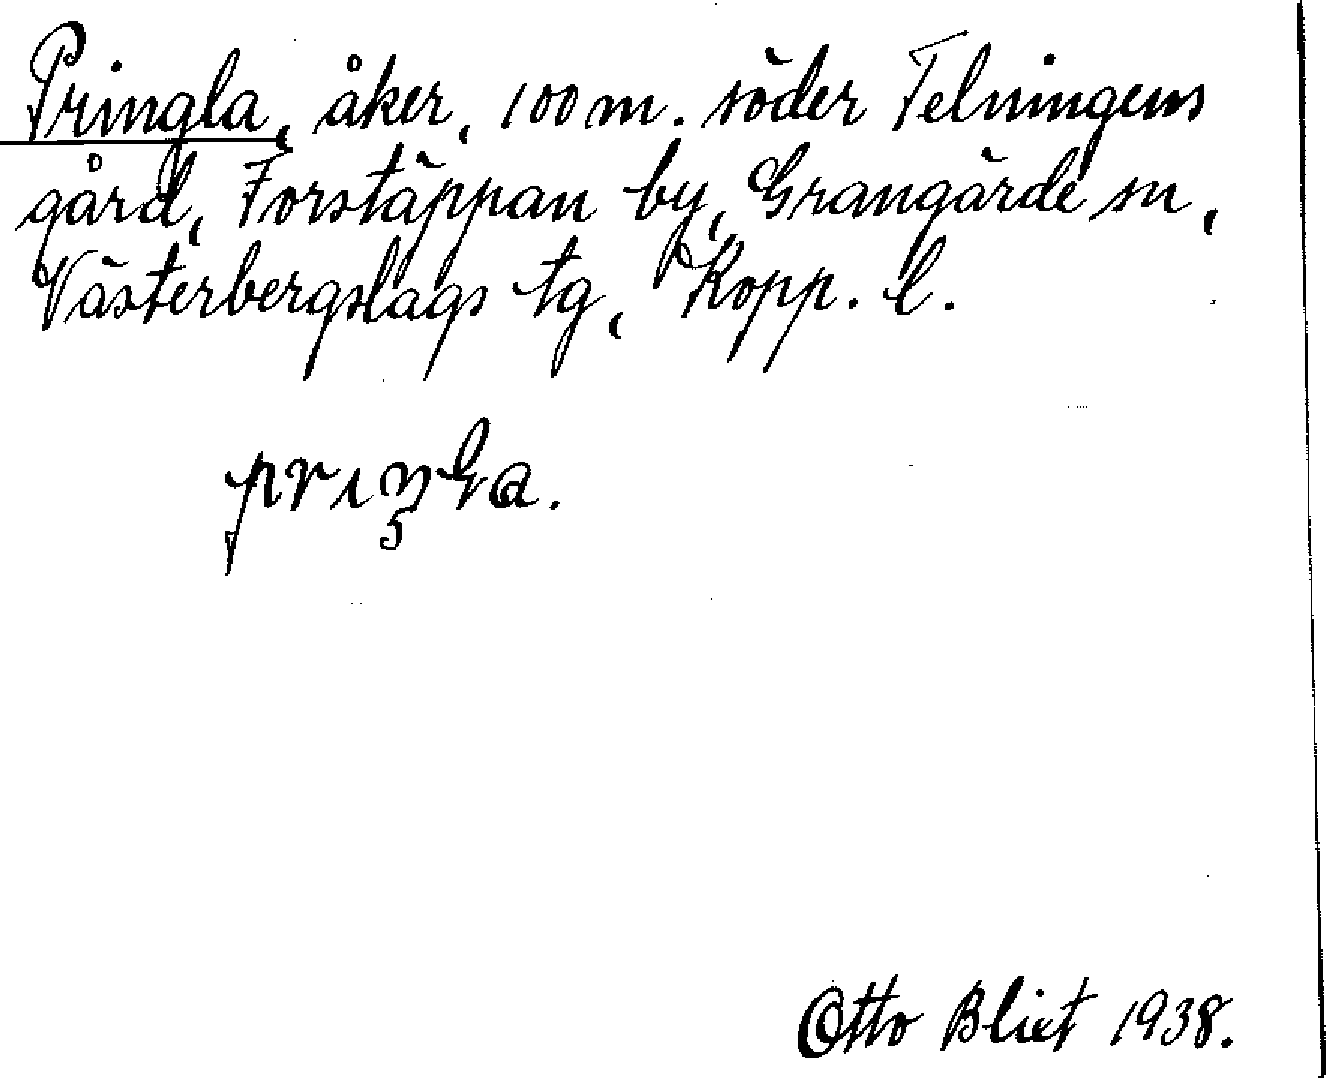 Pringla, åker, 100 m. söder Telningens
gård, Forstäppan by, Grangärde sn,
Västerbergslags tg, Kopp. l.
Otto Bliet 1938.